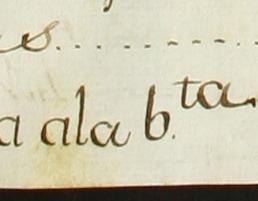 s.
a ala b.ta